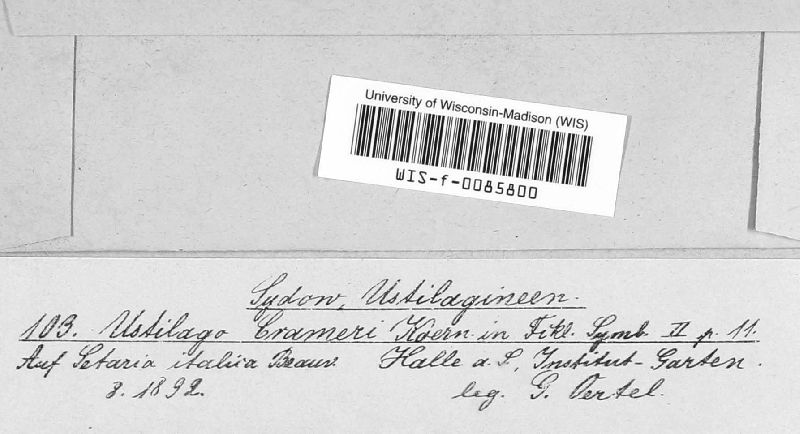 University of Wisconsin-Madison (WIS)
WIS-f-0085800
Sydow, Ustilagineen.
103. Ustilago Crameri Koern. in Fckl. Symb. II p. 11.
Auf Setaria italica Beauv. Halle a. S., Institut-Garten.
8. 1892. leg. G. Oertel.